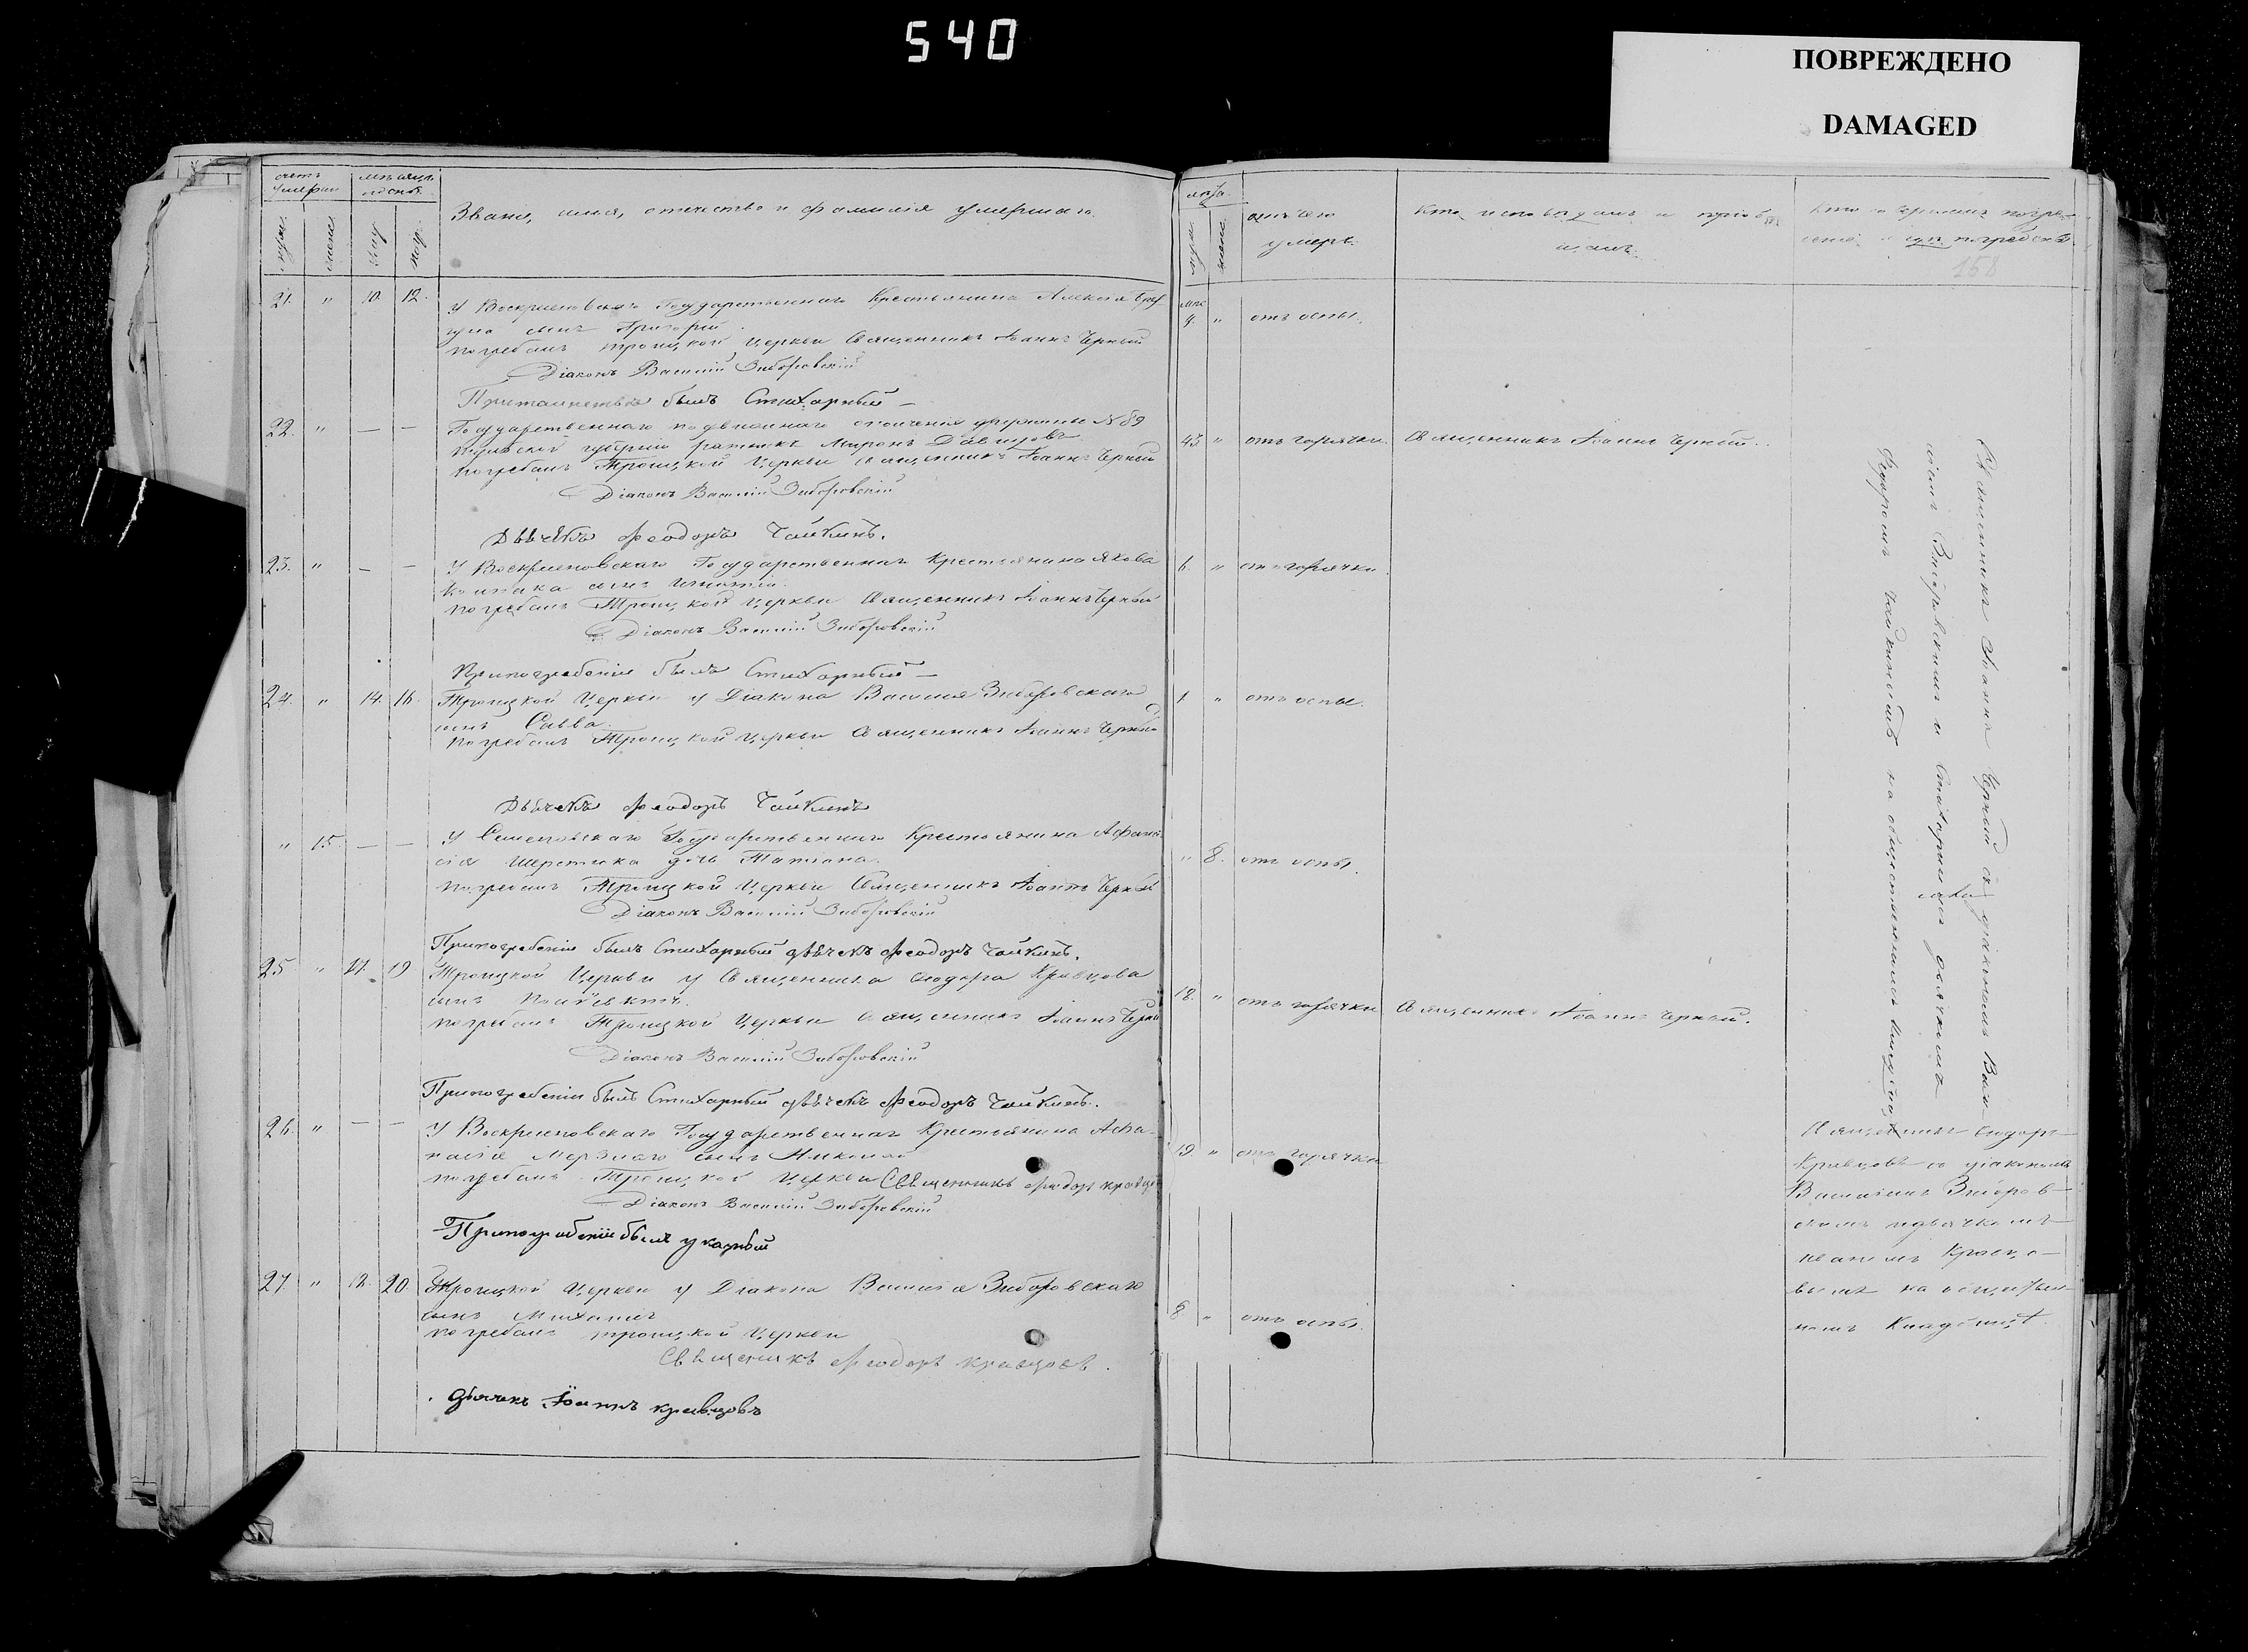 540
ПОВРЕЖДЕНО
DAMAGED
счетъ умерш
мѣсяцъ
Званіе, имя, отечество и фамилія умершаго.
лѣта
отъ чего
умеръ.
Кто исповѣдалъ и пріоб
щалъ.
Кто совершалъ погре-
беніе и гдѣ погребенъ
158
21. " 10. 12. У Воскресеновскаго Государственнаго Крестьянина Алексѣя
сынъ Григорій
погребалъ Троицкой Церкви Священникъ Іоаннъ Черный
Діаконъ Василій Зиборовскій
былъ Стихарный —
9. " отъ оспы.
22. " — — Государственнаго подвижнаго ополченія дружины №89
губерніи ратникъ Миронъ Давидовъ
погребалъ Троицкой Церкви Священникъ Іоаннъ Черный
Діаконъ Василій Зиборовскій
Дьячекъ Феодоръ Чайкинъ.
43 " отъ горячки. Священникъ Іоаннъ Черный.
23. " — — У Воскресеновскаго Государственнаго Крестьянина Якова
сынъ Игнатій.
погребалъ Троицкой Церкви Священникъ Іоаннъ Черный
Діаконъ Василій Зиборовскій
Припогребеніи былъ Стихарный —
6. " отъ горячки
24. " 14. 16. Троицкой Церкви у Діакона Василія Зиборовскаго
сынъ Савва.
погребалъ Троицкой Церкви Священникъ Іоаннъ Черный
Дьячекъ Феодоръ Чайкинъ
1. " отъ оспы.
" 15. — — У Государственнаго Крестьянина Афана-
сія дочь Татіана.
погребалъ Троицкой Церкви Священникъ Іоаннъ Черный
Діаконъ Василій Зиборовскій
Припогребеніи былъ Стихарный дьячекъ Феодоръ Чайкинъ.
" 8. отъ оспы.
25. " 17. 19 Троицкой Церкви у Священника Феодора Кравцова
сынъ
погребалъ Троицкой Церкви Священникъ Іоаннъ Черный
Діаконъ Василій Зиборовскій
Припогребеніи былъ Стихарный дьячекъ Феодоръ Чайкинъ.
18. " отъ горячки Священникъ Іоаннъ Черный.
26. " — — У Воскресеновскаго Государственнаго Крестьянина Афа-
насія Мерзлаго сынъ Николай
погребалъ Троицкой Церкви Священникъ Феодоръ Кравцо
Діаконъ Василій Зиборовскій
Припогребеніи былъ указный
19. " отъ горячки
27. " 18. 20. Троицкой Церкви у Діакона Василія Зиборовскаго
сынъ Михаилъ
погребалъ Троицкой Церкви
Священикъ Феодоръ Кравцовъ.
дьячекъ Іоаннъ Кравцовъ
8 " отъ оспы.
Священникъ Іоаннъ Черный съ діакономъ Васи-
ліемъ Зиборовскимъ и Стихарнымъ дьячкомъ
Феодоромъ Чайкинымъ на общественномъ кладбищѣ
Священникъ Феодоръ
Кравцовъ съ діакономъ
Василіемъ Зиборов-
скимъ и дьячкомъ
Іоаномъ Кравцо-
вымъ на обществен-
номъ Кладбищѣ.